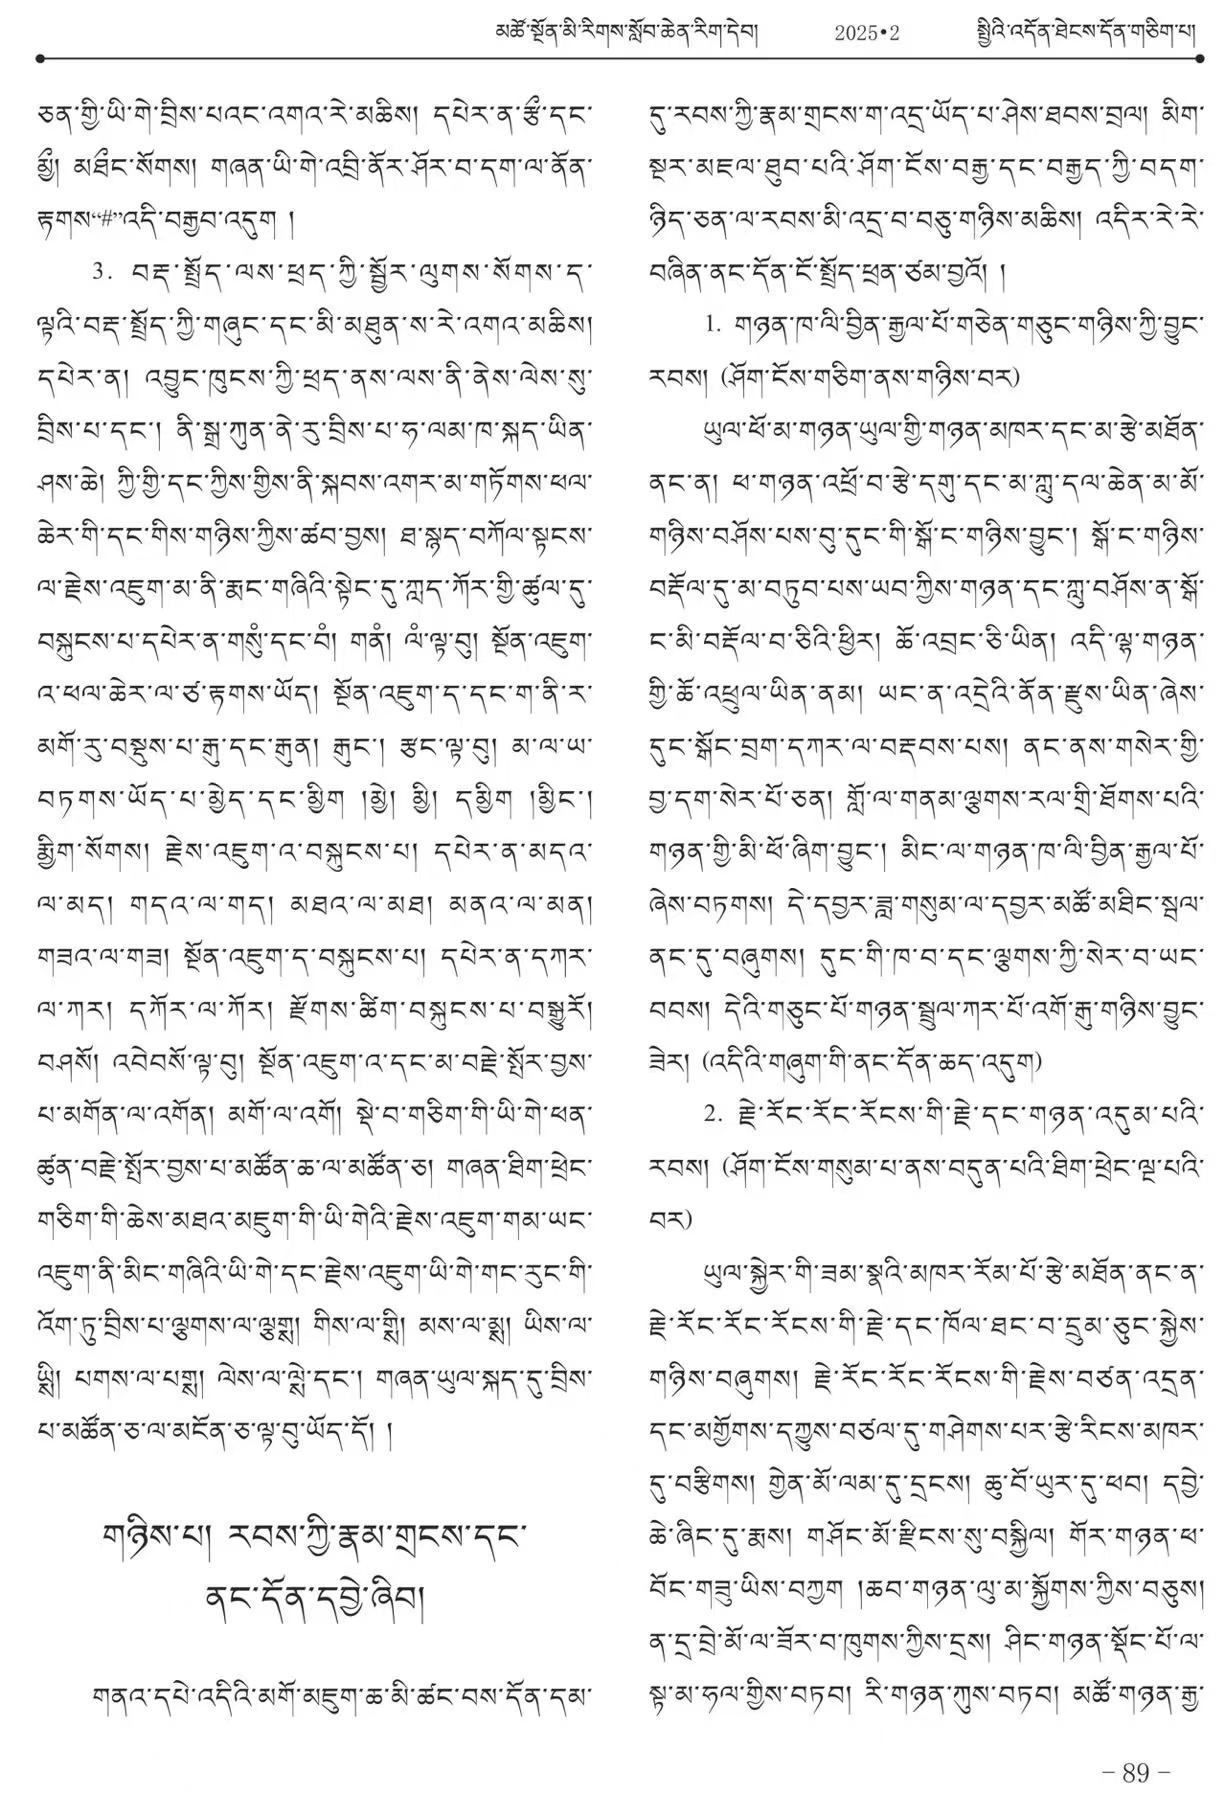 མཚོ་སྔོན་མི་རིགས་སློབ་ཆེན་རིག་དེབ། 2025•2 སྤྱིའི་འདོན་ཐེངས་དོན་གཅིག་པ།
ཅན་གྱི་ཡི་གེ་བྲིས་པའང་འགའ་རེ་མཆིས། དཔེར་ན་རྩྀ་དང་
མྱྀ། མཐྀང་སོགས། གཞན་ཡི་གེ་འབྲི་ནོར་ཤོར་བ་དག་ལ་ནོན་
རྟགས“#”འདི་བརྒྱབ་འདུག །
3. བརྡ་སྤྲོད་ལས་ཕྲད་ཀྱི་སྦྱོར་ལུགས་སོགས་ད་
ལྟའི་བརྡ་སྤྲོད་ཀྱི་གཞུང་དང་མི་མཐུན་ས་རེ་འགའ་མཆིས།
དཔེར་ན། འབྱུང་ཁུངས་ཀྱི་ཕྲད་ནས་ལས་ནི་ནེས་ལེས་སུ་
བྲིས་པ་དང་། ནི་སྒྲ་ཀུན་ནེ་རུ་བྲིས་པ་ཧ་ལམ་ཁ་སྐད་ཡིན་
ཤས་ཆེ། ཀྱི་གྱི་དང་ཀྱིས་གྱིས་ནི་སྐབས་འགར་མ་གཏོགས་ཕལ་
ཆེར་གི་དང་གིས་གཉིས་ཀྱིས་ཚབ་བྱས། ཐ་སྙད་བཀོལ་སྟངས་
ལ་རྗེས་འཇུག་མ་ནི་རྨང་གཞིའི་སྟེང་དུ་ཀླད་ཀོར་གྱི་ཚུལ་དུ་
བསྐུངས་པ་དཔེར་ན་གསུཾ་དང་བཾ། གནཾ། ལཾ་ལྟ་བུ། སྔོན་འཇུག་
འ་ཕལ་ཆེར་ལ་ཙ་རྟགས་ཡོད། སྔོན་འཇུག་ད་དང་ག་ནི་ར་
མགོ་རུ་བསྡུས་པ་རྒུ་དང་རྒུན། རྒུང་། རྩང་ལྟ་བུ། མ་ལ་ཡ་
བཏགས་ཡོད་པ་མྱེད་དང་མྱིག །མྱེ། མྱི། དམྱིག །མྱིང་།
རྨྱིག་སོགས། རྗེས་འཇུག་འ་བསྐུངས་པ། དཔེར་ན་མདའ་
ལ་མད། གདའ་ལ་གད། མཐའ་ལ་མཐ། མནའ་ལ་མན།
གཟའ་ལ་གཟ། སྔོན་འཇུག་ད་བསྐུངས་པ། དཔེར་ན་དཀར་
ལ་ཀར། དཀོར་ལ་ཀོར། རྫོགས་ཚིག་བསྐུངས་པ་བསྒྱུརོ།
བཤསོ། འབེབསོ་ལྟ་བུ། སྔོན་འཇུག་འ་དང་མ་བརྗེ་སྤོར་བྱས་
པ་མགོན་ལ་འགོན། མགོ་ལ་འགོ། སྡེ་བ་གཅིག་གི་ཡི་གེ་ཕན་
ཚུན་བརྗེ་སྤོར་བྱས་པ་མཚོན་ཆ་ལ་མཚོན་ཅ། གཞན་ཐིག་ཕྲེང་
གཅིག་གི་ཆེས་མཐའ་མཇུག་གི་ཡི་གེའི་རྗེས་འཇུག་གམ་ཡང་
འཇུག་ནི་མིང་གཞིའི་ཡི་གེ་དང་རྗེས་འཇུག་ཡི་གེ་གང་རུང་གི་
འོག་ཏུ་བྲིས་པ་ལྕགས་ལ་ལྕགྶ། གིས་ལ་གྶི། མས་ལ་མྶ། ཡིས་ལ་
ཡྶི། པགས་ལ་པགྶ། ལེས་ལ་ལྶེ་དང་། གཞན་ཡུལ་སྐད་དུ་བྲིས་
པ་མཚོན་ཅ་ལ་མངོན་ཅ་ལྟ་བུ་ཡོད་དོ། །
གཉིས་པ། རབས་ཀྱི་རྣམ་གྲངས་དང་
ནང་དོན་དབྱེ་ཞིབ།
གནའ་དཔེ་འདིའི་མགོ་མཇུག་ཆ་མི་ཚང་བས་དོན་དམ་
དུ་རབས་ཀྱི་རྣམ་གྲངས་ག་འདྲ་ཡོད་པ་ཤེས་ཐབས་བྲལ། མིག་
སྔར་མཇལ་ཐུབ་པའི་ཤོག་ངོས་བརྒྱ་དང་བརྒྱད་ཀྱི་བདག་
ཉིད་ཅན་ལ་རབས་མི་འདྲ་བ་བཅུ་གཉིས་མཆིས། འདིར་རེ་རེ་
བཞིན་ནང་དོན་ངོ་སྤྲོད་ཕྲན་ཙམ་བྱའོ། །
1. གཉན་ཁ་ལི་བྱིན་རྒྱལ་པོ་གཅེན་གཅུང་གཉིས་ཀྱི་བྱུང་
རབས། (ཤོག་ངོས་གཅིག་ནས་གཉིས་བར)
ཡུལ་ཕོ་མ་གཉན་ཡུལ་གྱི་གཉན་མཁར་དང་མ་རྩེ་མཐོན་
ནང་ན། ཕ་གཉན་འཕྲོ་བ་རྩེ་དགུ་དང་མ་ཀླུ་དལ་ཆེན་མ་མོ་
གཉིས་བཤོས་པས་བུ་དུང་གི་སྒོ་ང་གཉིས་བྱུང་། སྒོ་ང་གཉིས་
བརྡོལ་དུ་མ་བཏུབ་པས་ཡབ་ཀྱིས་གཉན་དང་ཀླུ་བཤོས་ན་སྒོ་
ང་མི་བརྡོལ་བ་ཅིའི་ཕྱིར། ཆོ་འབྲང་ཅི་ཡིན། འདི་ལྷ་གཉན་
གྱི་ཆོ་འཕྲུལ་ཡིན་ནམ། ཡང་ན་འདྲེའི་ནོན་རྫུས་ཡིན་ཞེས་
དུང་སྒོང་བྲག་དཀར་ལ་བརྡབས་པས། ནང་ནས་གསེར་གྱི་
བྱ་དག་སེར་པོ་ཅན། གློ་ལ་གནམ་ལྕགས་རལ་གྲི་ཐོགས་པའི་
གཉན་གྱི་མི་ཕོ་ཞིག་བྱུང་། མིང་ལ་གཉན་ཁ་ལི་བྱིན་རྒྱལ་པོ་
ཞེས་བཏགས། དེ་དབྱར་ཟླ་གསུམ་ལ་དབྱར་མཚོ་མཐིང་སྦལ་
ནང་དུ་བཞུགས། དུང་གི་ཁ་བ་དང་ལྕགས་ཀྱི་སེར་བ་ཡང་
བབས། དེའི་གཅུང་པོ་གཉན་སྦྲུལ་ཀར་པོ་འགོ་རྒུ་གཉིས་བྱུང་
ཟེར། (འདིའི་གཞུག་གི་ནང་དོན་ཆད་འདུག)
2. རྗེ་རོང་རོང་རོངས་གི་རྗེ་དང་གཉན་འདུམ་པའི་
རབས། (ཤོག་ངོས་གསུམ་པ་ནས་བདུན་པའི་ཐིག་ཕྲེང་ལྔ་པའི་
བར)
ཡུལ་སྐྱེར་གི་ཟམ་སྣའི་མཁར་རོམ་པོ་རྩེ་མཐོན་ནང་ན་
རྗེ་རོང་རོང་རོངས་གི་རྗེ་དང་ཁོལ་ཐང་བ་དྲུམ་ཅུང་སྐྱེས་
གཉིས་བཞུགས། རྗེ་རོང་རོང་རོངས་གི་རྗེས་བཙན་འདྲན་
དང་མགྱོགས་དཀྱུས་བཙལ་དུ་གཤེགས་པར་རྩེ་རིངས་མཁར་
དུ་བརྩིགས། གྱེན་མོ་ལམ་དུ་དྲངས། ཆུ་བོ་ཡུར་དུ་ཕབ། དབྱེ་
ཆེ་ཞིང་དུ་རྨས། གཤོང་མོ་རྫིངས་སུ་བསྐྱིལ། གོར་གཉན་ཕ་
བོང་གཟུ་ཡིས་བཀྱག །ཆབ་གཉན་ལུ་མ་སྐྱོགས་ཀྱིས་བཅུས།
ན་དྲ་བྲེ་མོ་ལ་ཟོར་བ་ཁུགས་ཀྱིས་དྲས། ཤིང་གཉན་སྡོང་པོ་ལ་
སྟ་མ་ཧལ་གྱིས་བཏབ། རི་གཉན་ཀུས་བཏབ། མཚོ་གཉན་རྒྱ་
– 89 –